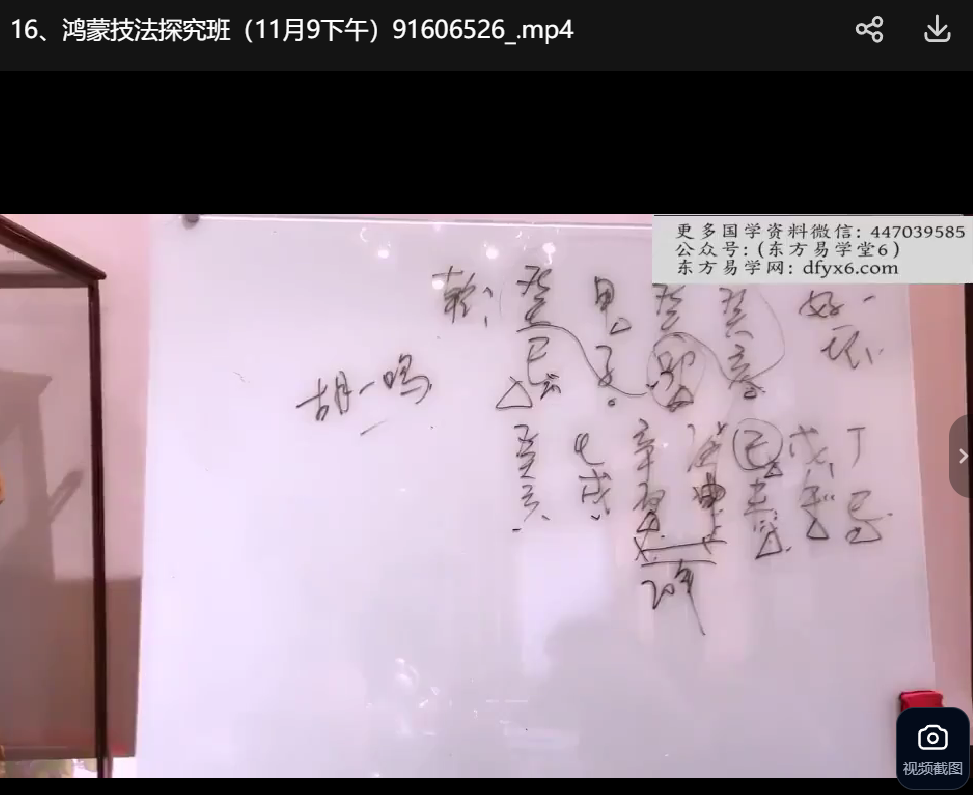 16、鸿蒙技法探究班（11月9下午）91606526_.mp4
更多国学资料微信: 447039585
公众号: (东方易学堂6)
东方易学网: dfyx6.com
乾: 癸 甲 癸 癸 好一
巳 子 亥 坏
胡一鸣
癸 壬 辛 庚 己 戊 丁
亥 戌 酉 申 未 午 巳
20年
视频截图